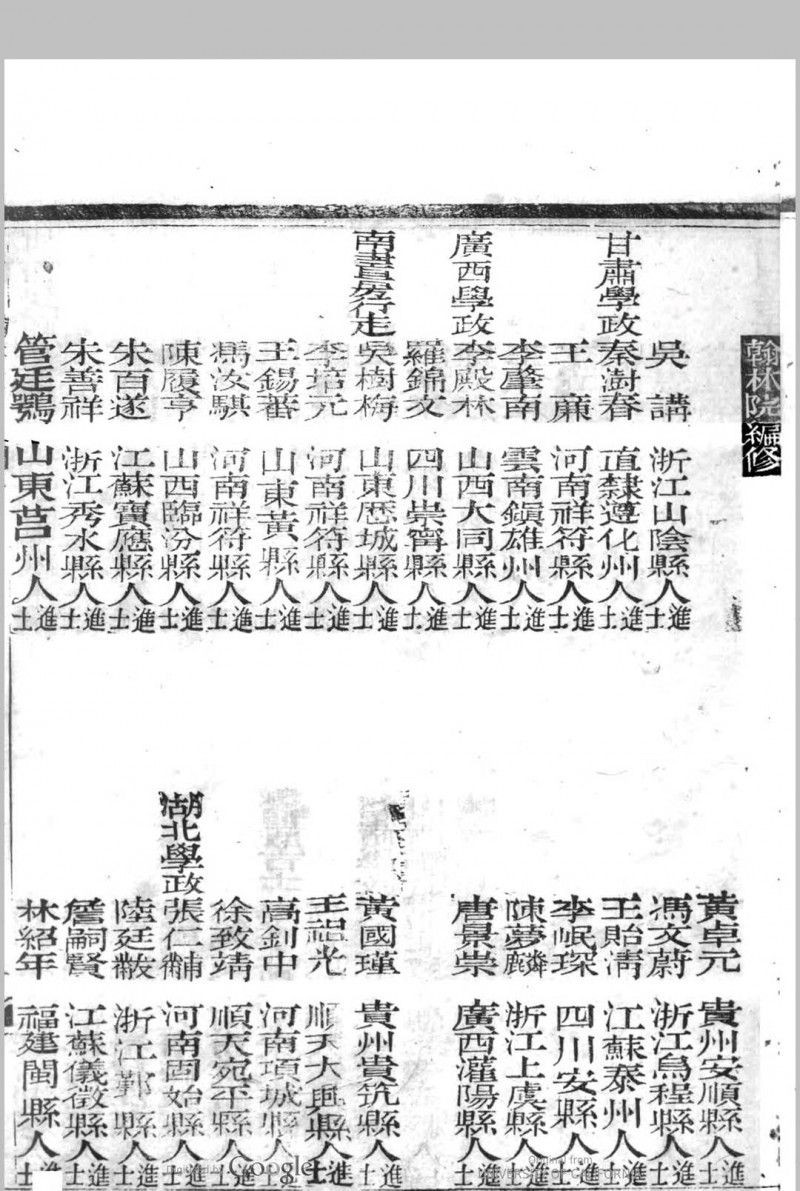 翰林院編修
吳講 浙江山陰縣人進士
甘肅學政秦澍春 直隸遵化州人進士
王廉 河南祥符縣人進士
李肇南 雲南鎮雄州人進士
廣西學政李殿林 山西大同縣人進士
羅錦文 四川崇寧縣人進士
南書房行走吳樹梅 山東歷城縣人進士
李培元 河南祥符縣人進士
王錫蕃 山東黃縣人進士
馮汝騏 河南祥符縣人進士
陳履亨 山西臨汾縣人進士
朱百遂 江蘇寶應縣人進士
朱善祥 浙江秀水縣人進士
管廷鶚 山東莒州人進士
黃卓元 貴州安順縣人進士
馮文蔚 浙江烏程縣人進士
王貽清 江蘇泰州人進士
李岷琛 四川安縣人進士
陳夢麟 浙江上虞縣人進士
唐景崇 廣西灌陽縣人進士
黃國瑾 貴州貴筑縣人進士
王祖光 順天大興縣人進士
高釗中 河南項城縣人進士
徐致靖 順天宛平縣人進士
湖北學政張仁黼 河南固始縣人進士
陸廷黻 浙江鄞縣人進士
詹嗣賢 江蘇儀徵縣人進士
林紹年 福建閩縣人進士
Digitized by Google
Original from
UNIVERSITY OF CALIFORNIA